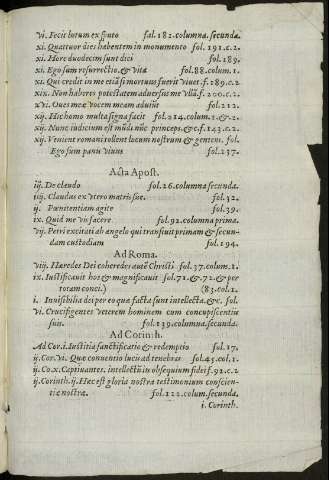 vi. Fecit lutum ex sputo fol. 182. columna. secunda.
xi. Quattuor dies habentem in monumento fol. 191. c. 2.
xi. Hore duodecim sunt diei fol. 189.
xi. Ego sum resurrectio. & vita fol. 88. colum. 1.
xi. Qui credit in me etiā si mortuus fuerit viuet. f. 189. c. 2.
xix. Non haberes potestatem aduersus me vllā. f. 200. c. 2.
xvi. Oues meæ vocem meam adiūt fol. 212.
xij. Hic homo multa signa facit fol. 214. colum. 1. & 2.
xij. Nunc iudicium est mūdi nūc princeps. & c. f. 143. c. 2.
xij. Venient romani tollent locum nostrum & gentem. fol.
Ego sum panis viuus fol. 237.
Acta Apost.
iij. De claudo fol. 26. columna secunda.
iij. Claudus ex vtero matris suæ. fol. 32.
ij. Pœnitentiam agite fol. 39.
ix. Quid me vis facere fol. 92. columna prima.
vij. Petri excitati ab angelo qui transiuit primam & secun-
dam custodiam fol. 194.
Ad Roma.
viij. Haredes Dei coheredes autē Christi fol. 37. colum. 1.
ix. Iustificauit hos & magnificauit fol. 71. & 72. & per
totam conci.) (83. col. 1.
i. Inuisibilia dei per eo quæ facta sunt intellecta. &c. fol.
vi. Crucifigentes veterem hominem cum concupiscentiis
suis. fol. 139. columna. secunda.
Ad Corinth.
Ad Cor. i. Iustitia sanctificatio & redemptio fol. 17.
ij. Cor. vi. Quæ conuentio lucis ad tenebras fol. 45. col. 1.
ij. Co. x. Captiuantes. intellectū in obsequium fidei f. 92. c. 2
ij. Corinth. ij. Hæc est gloria nostra testimonium conscien-
tiæ nostræ. fol. 122. colum. secunda.
i. Corinth.